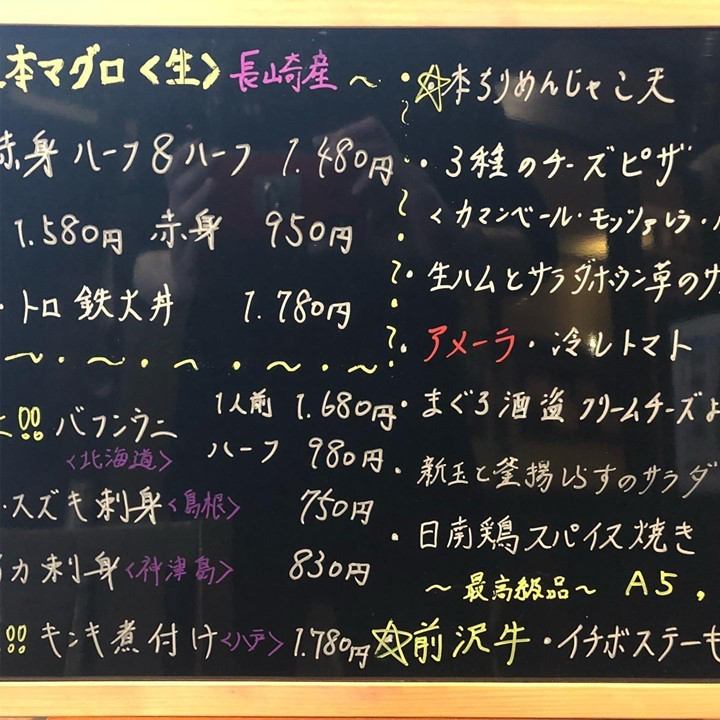 本マグロ〈生〉長崎産 〜
赤身 ハーフ&ハーフ 1.480円
1.580円 赤身 950円
・トロ鉄火丼 1.780円
!! バフンウニ 1人前 1.680円
〈北海道〉 ハーフ 980円
・スズキ刺身〈島根〉 750円
カ刺身〈神津島〉 830円
!! キンキ煮付け〈八戸〉 1.780円
☆本ちりめんじゃこ天
・3種のチーズピザ
〈カマンベール・モッツァレラ・
・生ハムとサラダホウレン草のサ
・アメーラ・冷しトマト
・まぐろ酒盗クリームチーズよ
・新玉と釜揚しらすのサラダ
・日南鶏スパイス焼き
〜最高級品〜 A5,
☆前沢牛・イチボステーキ